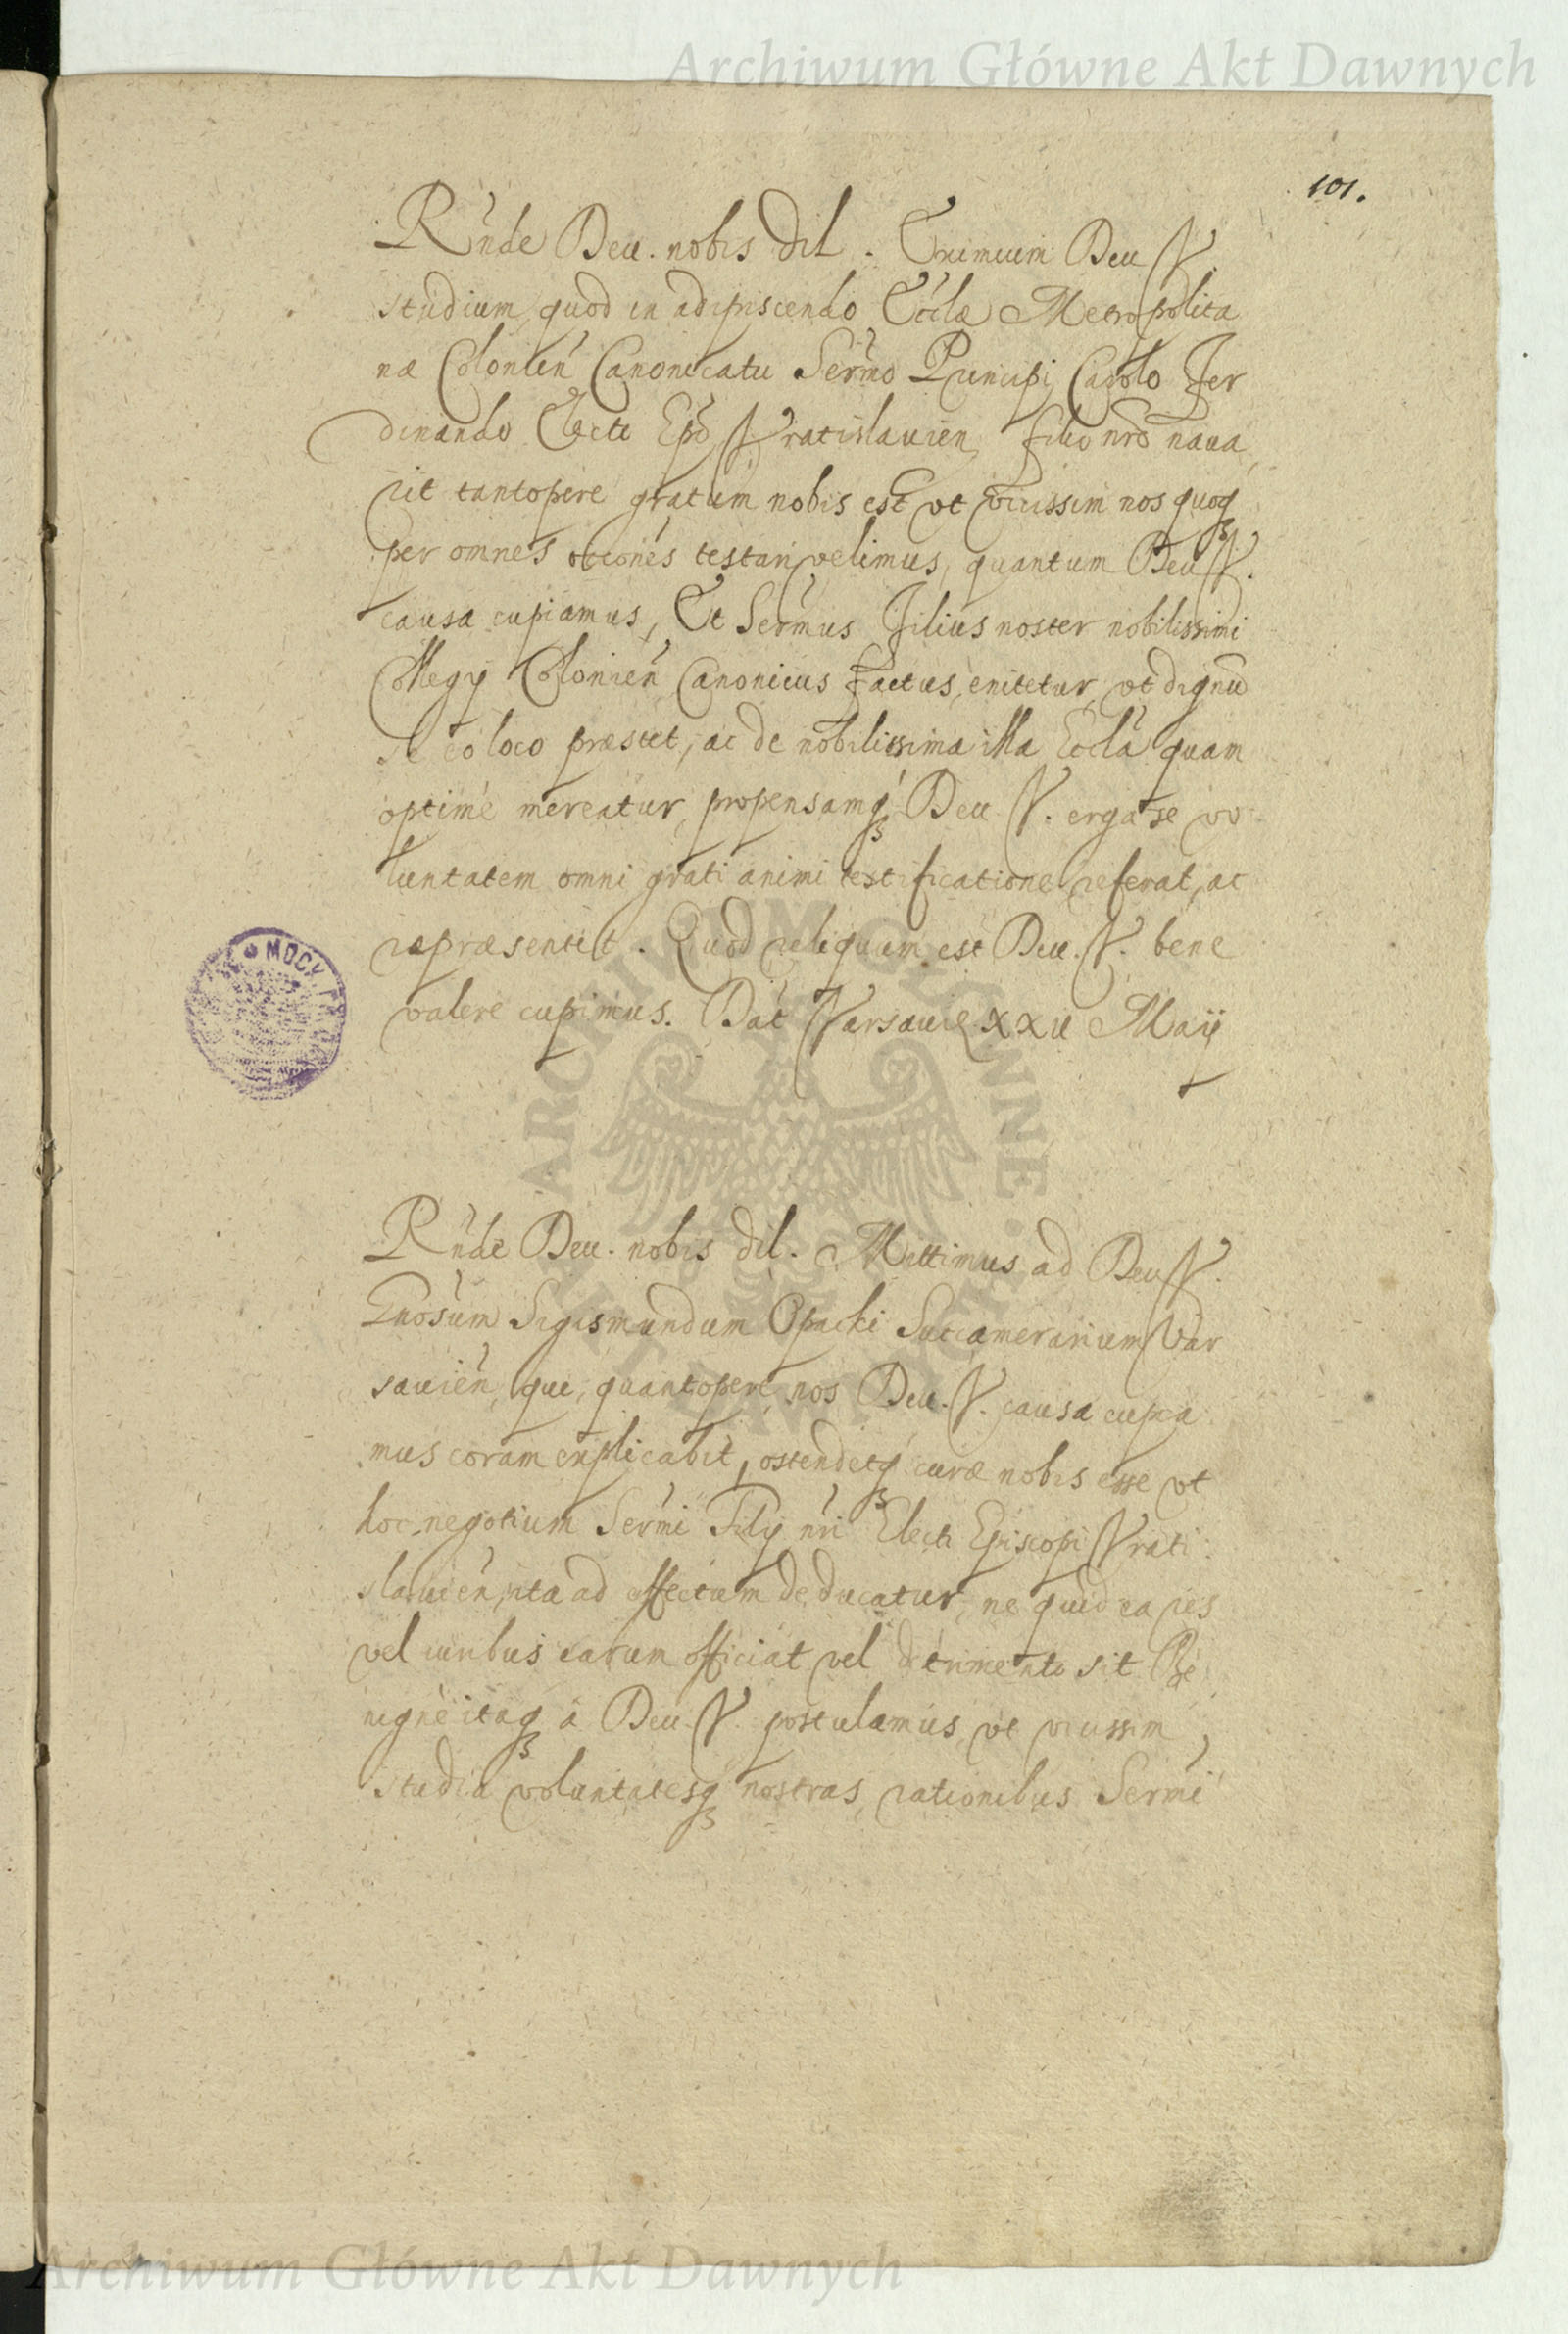 Archiwum Główne Akt Dawnych
101.
Rnde Deu. nobis dil. Eximium Deu V.
studium, quod in adipiscendo Ecclæ Metropolita
næ Colonien Canonicatu Sermo Principi Carolo Fer
dinando Electo Epo Vratislauien, filio nro naua
rit tantopere gratum nobis est vt vicissim nos quoq
per omnes occiones testari velimus, quantum Deu V.
causa cupiamus, Et Sermus Filius noster nobilissimi
Collegij Colonien Canonicus factus, enitetur, vt dignu
se eo loco præstet, ac de nobilissima illa Eccla quam
optime mereatur, propensamq Deu V. erga se vo
luntatem omni grati animi testificatione referat, ac
repræsentet. Quod reliquum est Deu. V. bene
valere cupimus. Dat Varsauie XXV Maij
Rnde Deu. nobis dil. Mittimus ad Deu V.
Gnosum Sigismundum Opacki Succamerarium Var
sauien, qui, quantopere nos Deu. V. causa cupia
mus coram explicabit, ostendetq curæ nobis esse vt
hoc negotium Sermi Filij nri Electi Episcopi Vrati
slauien, ita ad effectum deducatur, ne quid ea res
vel iuribus earum officiat vel detrimento sit Be
nigne itaq a Deu V. postulamus, vt vicissim
studia voluntatesq nostras, rationibus Sermi
ARCHIWUM GŁÓWNE AKT DAWNYCH
Archiwum Główne Akt Dawnych